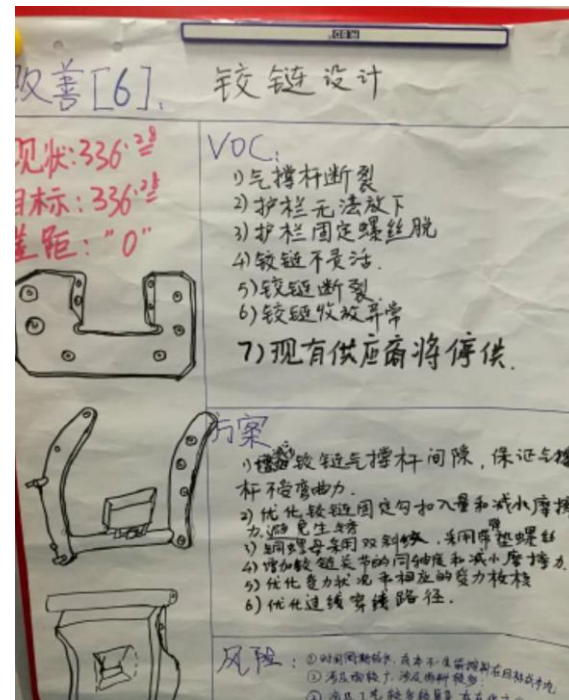 改善[6]. 铰链设计
现状:336.28
目标:336.28
差距:"0"
VOC:
1)气撑杆断裂
2)护栏无法放下
3)护栏固定螺丝脱
4)铰链不灵活.
5)铰链断裂.
6)铰链收放异常
7)现有供应商将停供.
方案
1) 铰链气撑杆间隙,保证气撑
杆不受弯曲力.
2)优化铰链固定勾扣入量和减小摩擦
力,避免生锈
3) 螺母采用双斜 ,采用带垫螺丝
4)增加铰链关节的同轴度和减小摩擦力
5)优化受力状况 相应的受力校核
6)优化过线穿线路径.
风险:①时间周期较长,
②涉及物较广,涉及物料较多